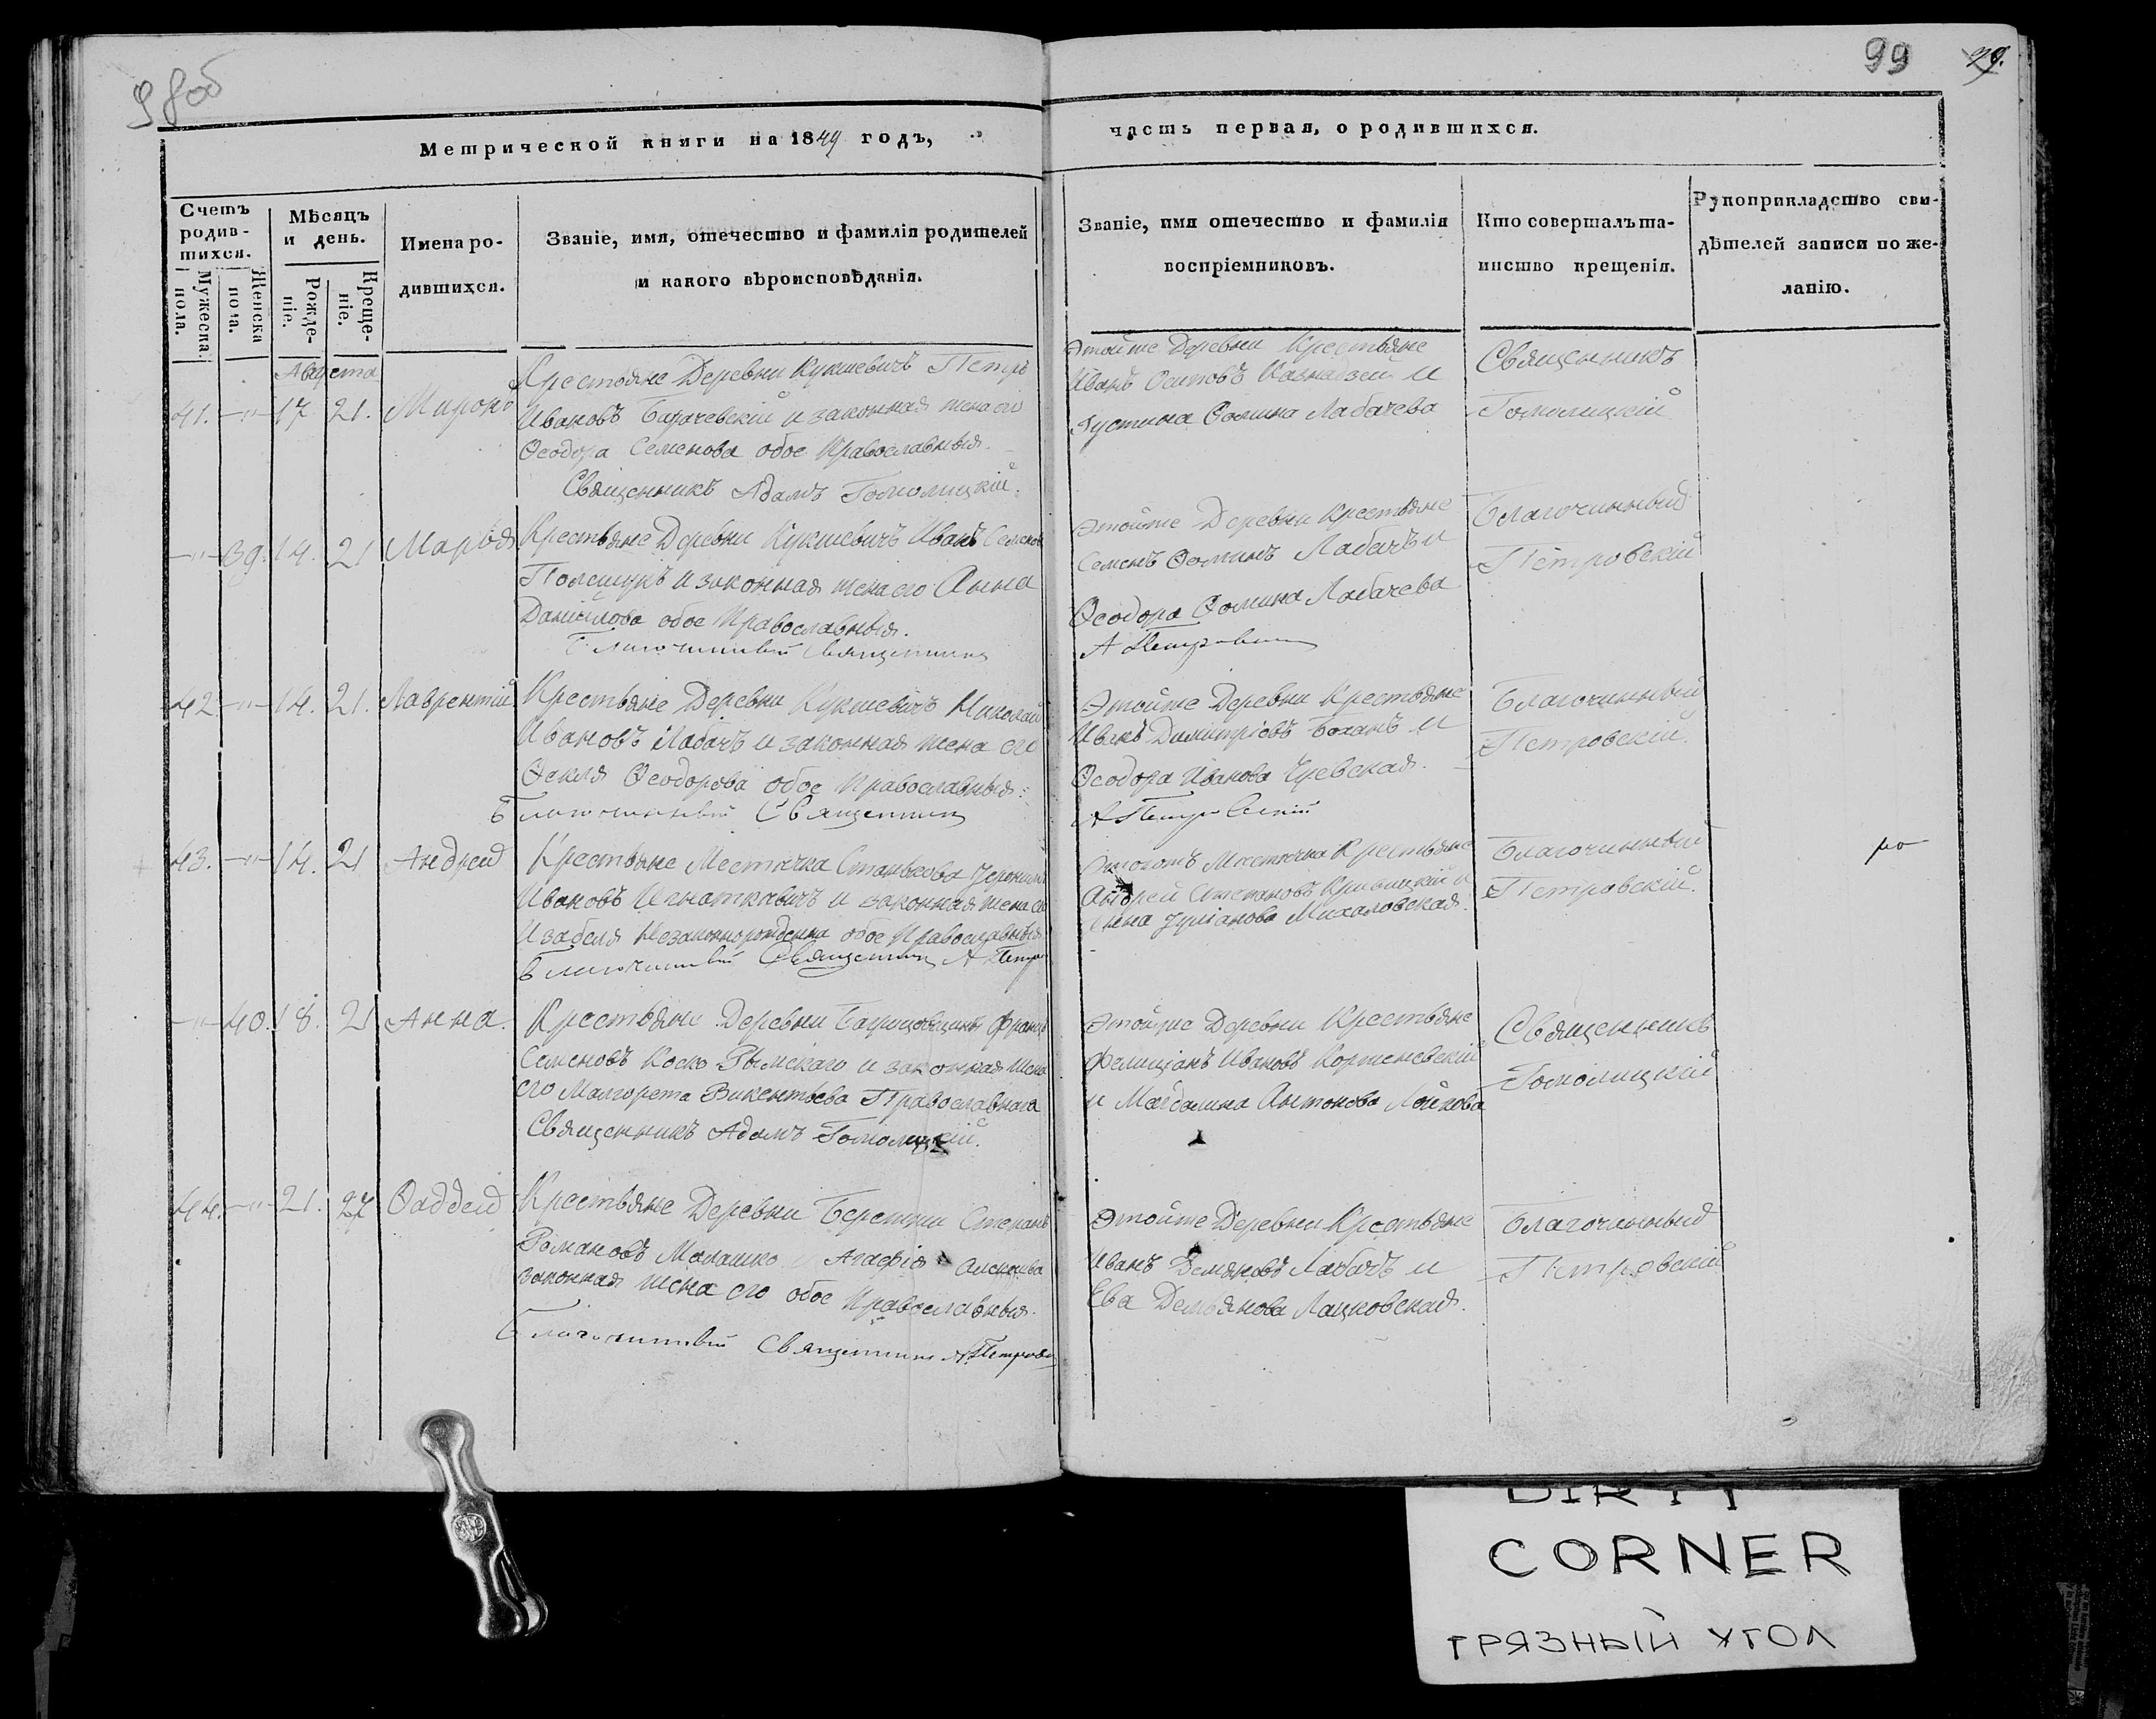 98об
99
Метрической книги на 1849 годъ,
часть первая, о родившихся.
Счетъ родив-шихся.
Мужеска пола.
Женска пола.
Мѣсяцъ и день.
Рожде-ніе.
Креще-ніе.
Имена ро-
дившихся.
Званіе, имя, отечество и фамилія родителей
и какого вѣроисповѣданія.
Званіе, имя отечество и фамилія
воспріемниковъ.
Кто совершалъ та-
инство крещенія.
Рукоприкладство сви-
дѣтелей записи по же-
ланію.
Августа
41. -"- 17 21. Миронъ
Крестьяне Деревни Кукшевичъ Петръ
Ивановъ и законная жена его
Ѳеодора Семенова обое Православныя.
Священникъ Адамъ Гомолицкій.
Этойже Деревни Крестьяне
Иванъ Осиповъ и
Іустина Ѳомина Лабачева
Священникъ
Гомолицкій
-"- 39. 14. 21 Марья
Крестьяне Деревни Кукшевичъ Иванъ Семенов
Полещукъ и законная жена его Анна
Даніилова обое Православныя.
Благочинный Священникъ
Этойже Деревни Крестьяне
Семенъ Ѳоминъ Лабачъ и
Ѳеодора Ѳомина Лабачева
А Петровскій
Благочинный
Петровскій
42 -"- 14. 21. Лаврентій
Крестьяне Деревни Кукшевичъ Николай
Ивановъ Лабачъ и законная жена его
Ѳекля Ѳеодорова обое Православныя:
Благочинный Священникъ
Этойже Деревни Крестьяне
Иванъ Димитріовъ Боханъ и
Ѳеодора Иванова
А Петровскій
Благочинный
Петровскій.
43. -"- 14. 21 Андрей
Крестьяне Местечка Станькова Іеронимъ
Ивановъ Игнатковичъ и законная жена его
Изабеля Незаконнорожденна обое Православныя
Благочинный Священникъ А Петро
Этогожъ Местечка Крестьяне
Андрей Степановъ Кривицкій и
Іуліанова Михаловская.
Благочинный
Петровскій.
-"- 40. 18. 21 Анна.
Крестьяне Деревни Францъ
Семеновъ Коско Рымскаго и законная жена
его Малгорета Викентьева Православнаго
Священникъ Адамъ Гомолицкій.
Этойже Деревни Крестьяне
Фелиціанъ Ивановъ Корженевскій
и Магдалина Антонова
Священникъ
Гомолицкій
44. -"- 21. 27 Ѳаддей
Крестьяне Деревни Бережи Стефанъ
Романовъ Малашко и Агафія
законная жена его обое Православныя.
Благочинный Священникъ А. Петровск
Этойже Деревни Крестьяне
Иванъ Лабачъ и
Ева Демьянова Лацковская.
Благочинный
Петровскій
DIRTY
CORNER
ГРЯЗНЫЙ УГОЛ